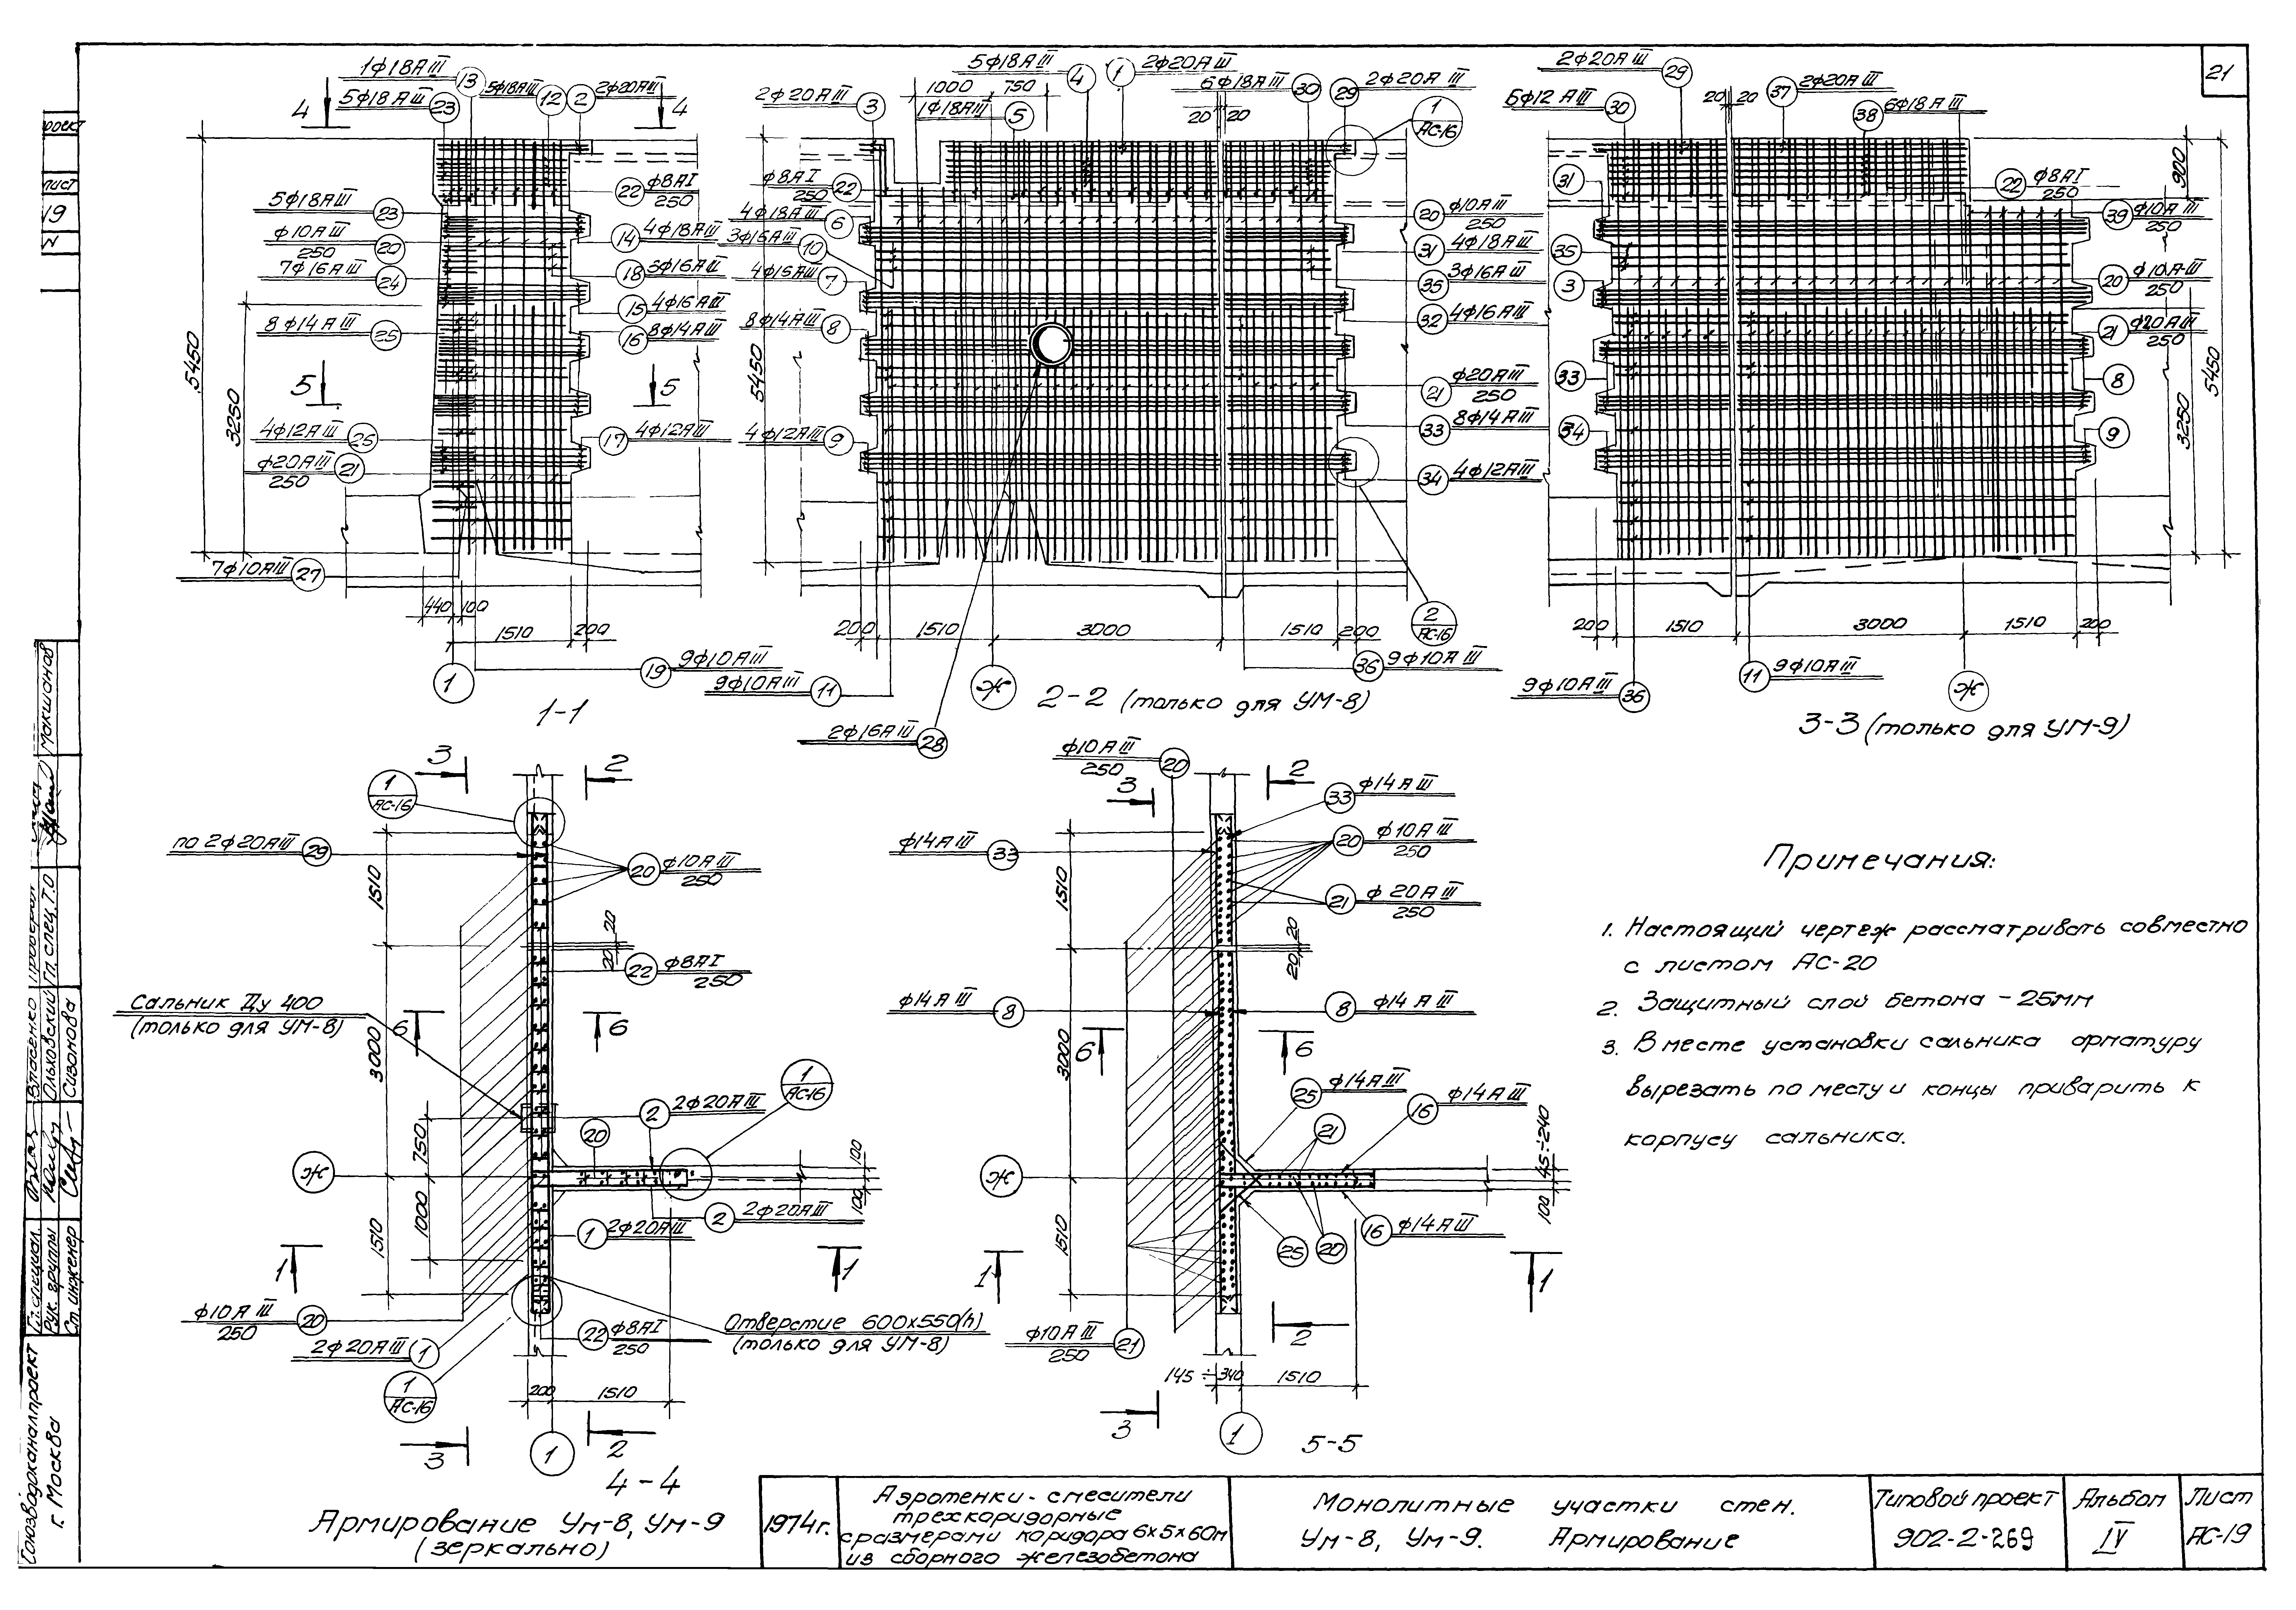 21
1ф18АIII 13
5ф18АIII 23
5ф18АIII 12
2 2ф20АIII
4 4
5450
3250
5ф18АIII 23
ф10АIII 20
250
7ф16АIII 24
8ф14АIII 25
5 5
ф20АIII 21
250
7ф10АIII 27
22 ф8АI
250
14 4ф18АIII
18 5ф16АIII
15 4ф16АIII
16 8ф14АIII
17 4ф12АIII
440 100
1510 200
19 9ф10АIII
1
1-1
5ф18АIII 4
1 2ф20АIII
2ф20АIII 3
1000 750
1ф18АIII 5
6ф18АIII 30
29 2ф20АIII
20 20
1
АС-16
ф8АI 22
250
4ф18АIII 6
3ф16АIII 10
7
8ф14АIII 8
4ф12АIII 9
5450
20 ф10АIII
250
31 4ф18АIII
35 3ф16АIII
32 4ф16АIII
21 ф20АIII
250
33 8ф14АIII
34 4ф12АIII
2
АС-16
200 1510 3000 1510 200
9ф10АIII 11
36 9ф10АIII
2ф16АIII 28
Ж
2-2 (только для УМ-8)
2ф20АIII 29
6ф12АIII 30
20 20
37 2ф20АIII
6ф18АIII
38
31
35
3
33
34
22 ф8АI
250
39 ф10АIII
250
20 ф10АIII
250
21 ф20АIII
250
8
9
900
5450
3250
200 1510 3000 1510 200
9ф10АIII 36
11 9ф10АIII
Ж
3-3 (только для УМ-9)
3 2
1
АС-16
по 2ф20АIII 29
20 ф10АIII
250
1510
20 20
22 ф8АI
250
Сальник Ду 400
(только для УМ-8)
6 6
3000
750
1000
1510
1
АС-16
2 2ф20АIII
20
Ж
100
100
2 2ф20АIII
1 2ф20АIII
1 1
ф10АIII 20
250
2ф20АIII 1
Отверстие 600х550(h)
(только для УМ-8)
22 ф8АI
250
1
АС-16
200 1510
3 2
1
4-4
Армирование Ум-8, Ум-9
(зеркально)
ф10АIII 20
250
3 2
33 ф14АIII
ф14АIII 33
20 ф10АIII
250
21 ф20АIII
250
1510
20 20
ф14АIII 8
8 ф14АIII
6 6
3000
25 ф14АIII
16 ф14АIII
21
45÷240
100
Ж
16 ф14АIII
25 20
1510
1 1
ф10АIII 21
250
2
145÷340 1510
3
1
5-5
Примечания:
1. Настоящий чертеж рассматривать совместно
с листом АС-20
2. Защитный слой бетона - 25мм
3. В месте установки сальника арматуру
вырезать по месту и концы приварить к
корпусу сальника.
1974г.
Аэротенки-смесители
трехкоридорные
с размерами коридора 6х5х60м
из сборного железобетона
Монолитные участки стен.
Ум-8, Ум-9. Армирование
Типовой проект
902-2-269
Альбом
IV
Лист
АС-19
Союзводоканалпроект
г. Москва
Рук. группы
Ст. инженер
Власенко
Ольховский
Сизонова
Гл. спец. Т.О
Макшанов